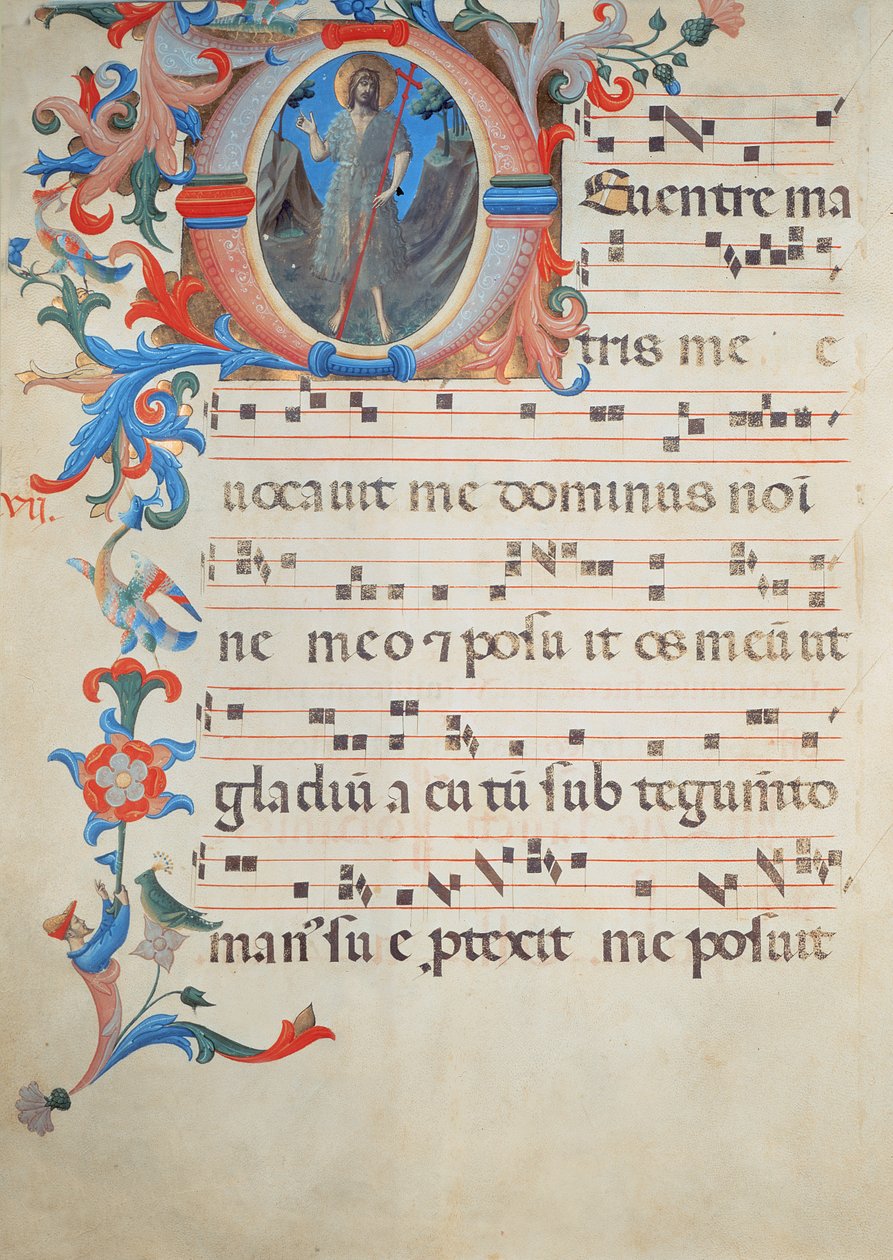 Euentre ma
tris me e
uocauit me dominus noi
ne meo ⁊ posu it os meū ut
gladiū a cu tū sub tegumīto
man⁹ su e ꝓtexit me posuit
vii.